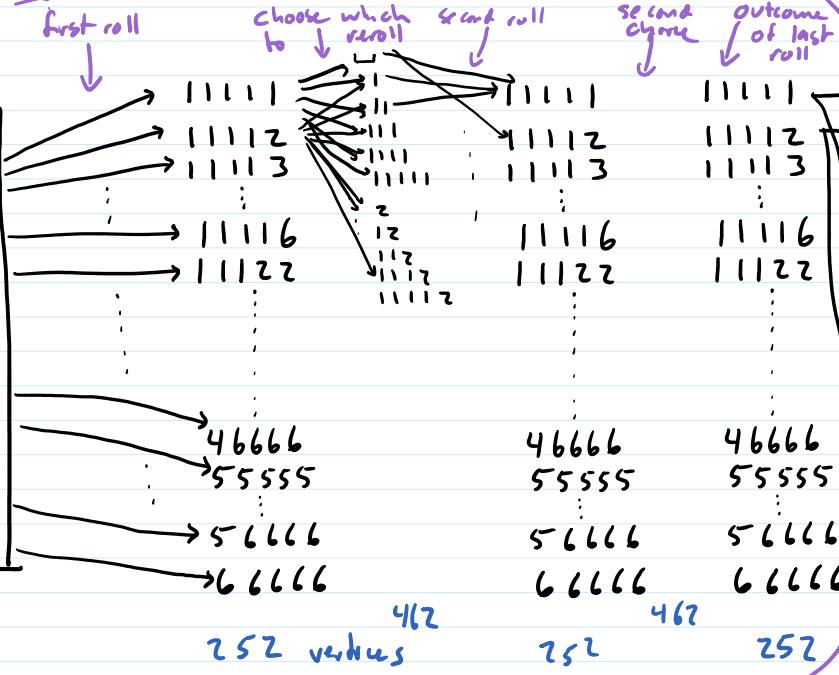 first roll
choose which
to reroll
second roll
second
choice
outcome
of last
roll
11111
11112
11113
11116
11122
46666
55555
56666
66666
1
11
111
1111
11111
2
12
112
1112
11112
11111
11112
11113
11116
11122
46666
55555
56666
66666
11111
11112
11113
11116
11122
46666
55555
56666
66666
252 vertices
462
252
462
252